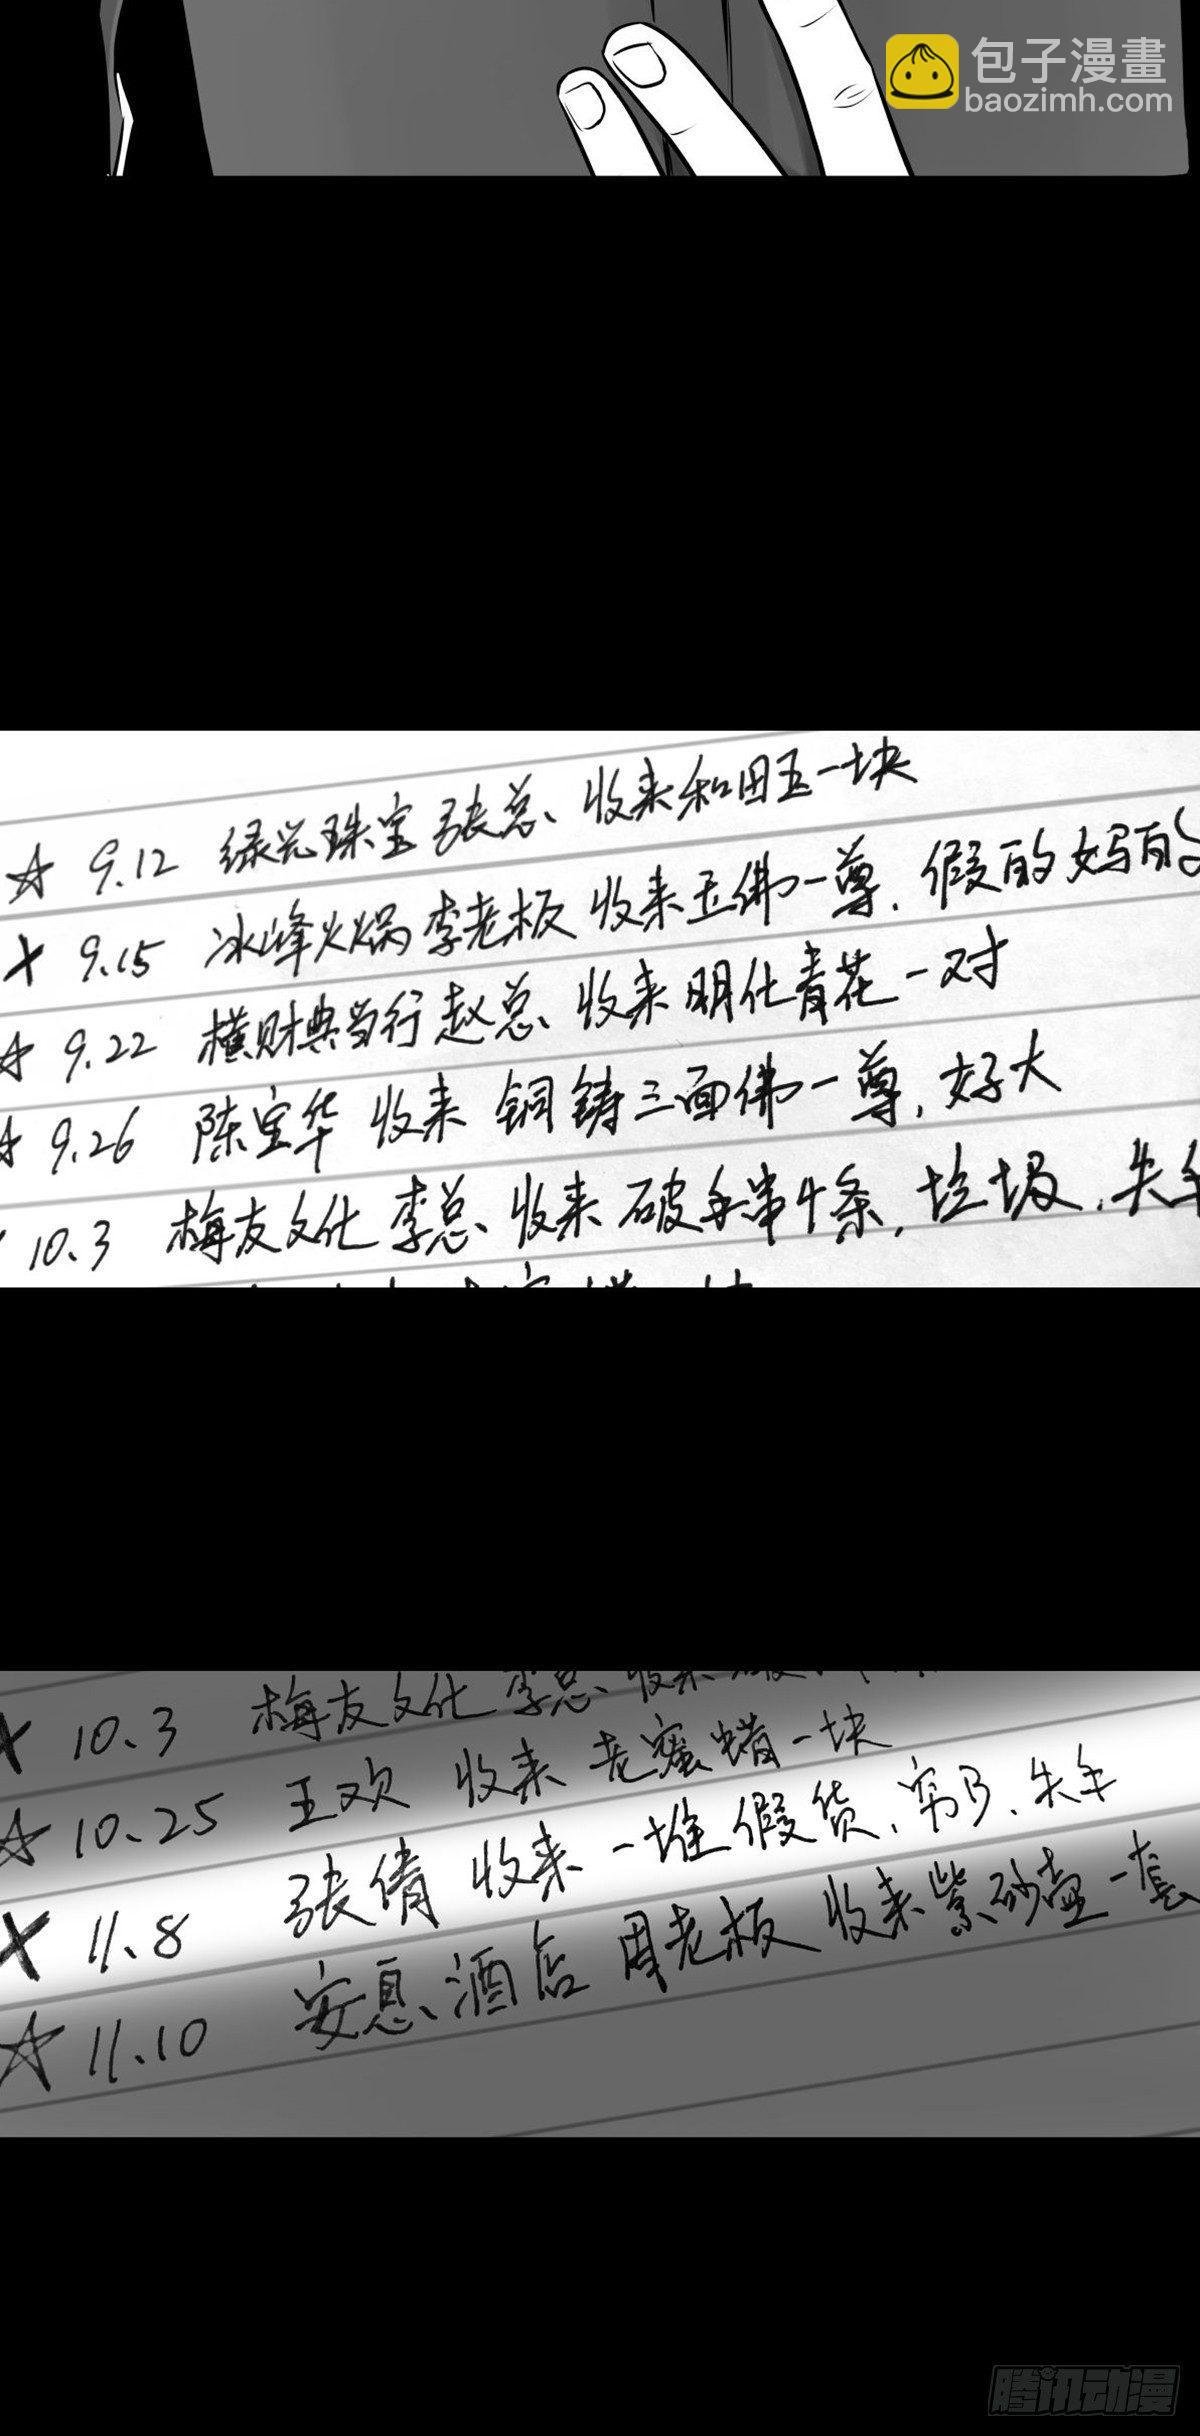 包子漫畫
baozimh.com
☆ 9.12 绿光珠宝 张总 收来和田玉一块
X 9.15 冰峰火锅 李老板 收来玉佛一尊,假的妈的
☆ 9.22 横财典当行 赵总 收来 明代青花一对
☆ 9.26 陈宝华 收来 铜铸三面佛一尊,好大
10.3 梅友文化 李总 收来 破手串4条,垃圾,失手
X 10.3 梅友文化 李总 收来
☆ 10.25 王欢 收来 老蜜蜡一块
X 11.8 张倩 收来 一堆假货,穷B,失手
☆ 11.10 安息酒店 周老板 收来紫砂壶一套
腾讯动漫